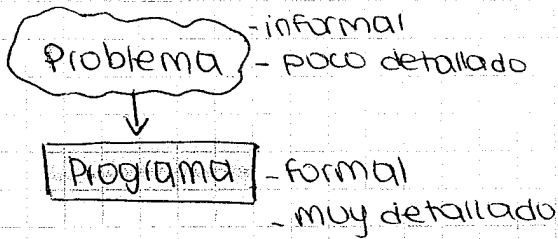 Problema
- informal
- poco detallado
Programa
- formal
- muy detallado